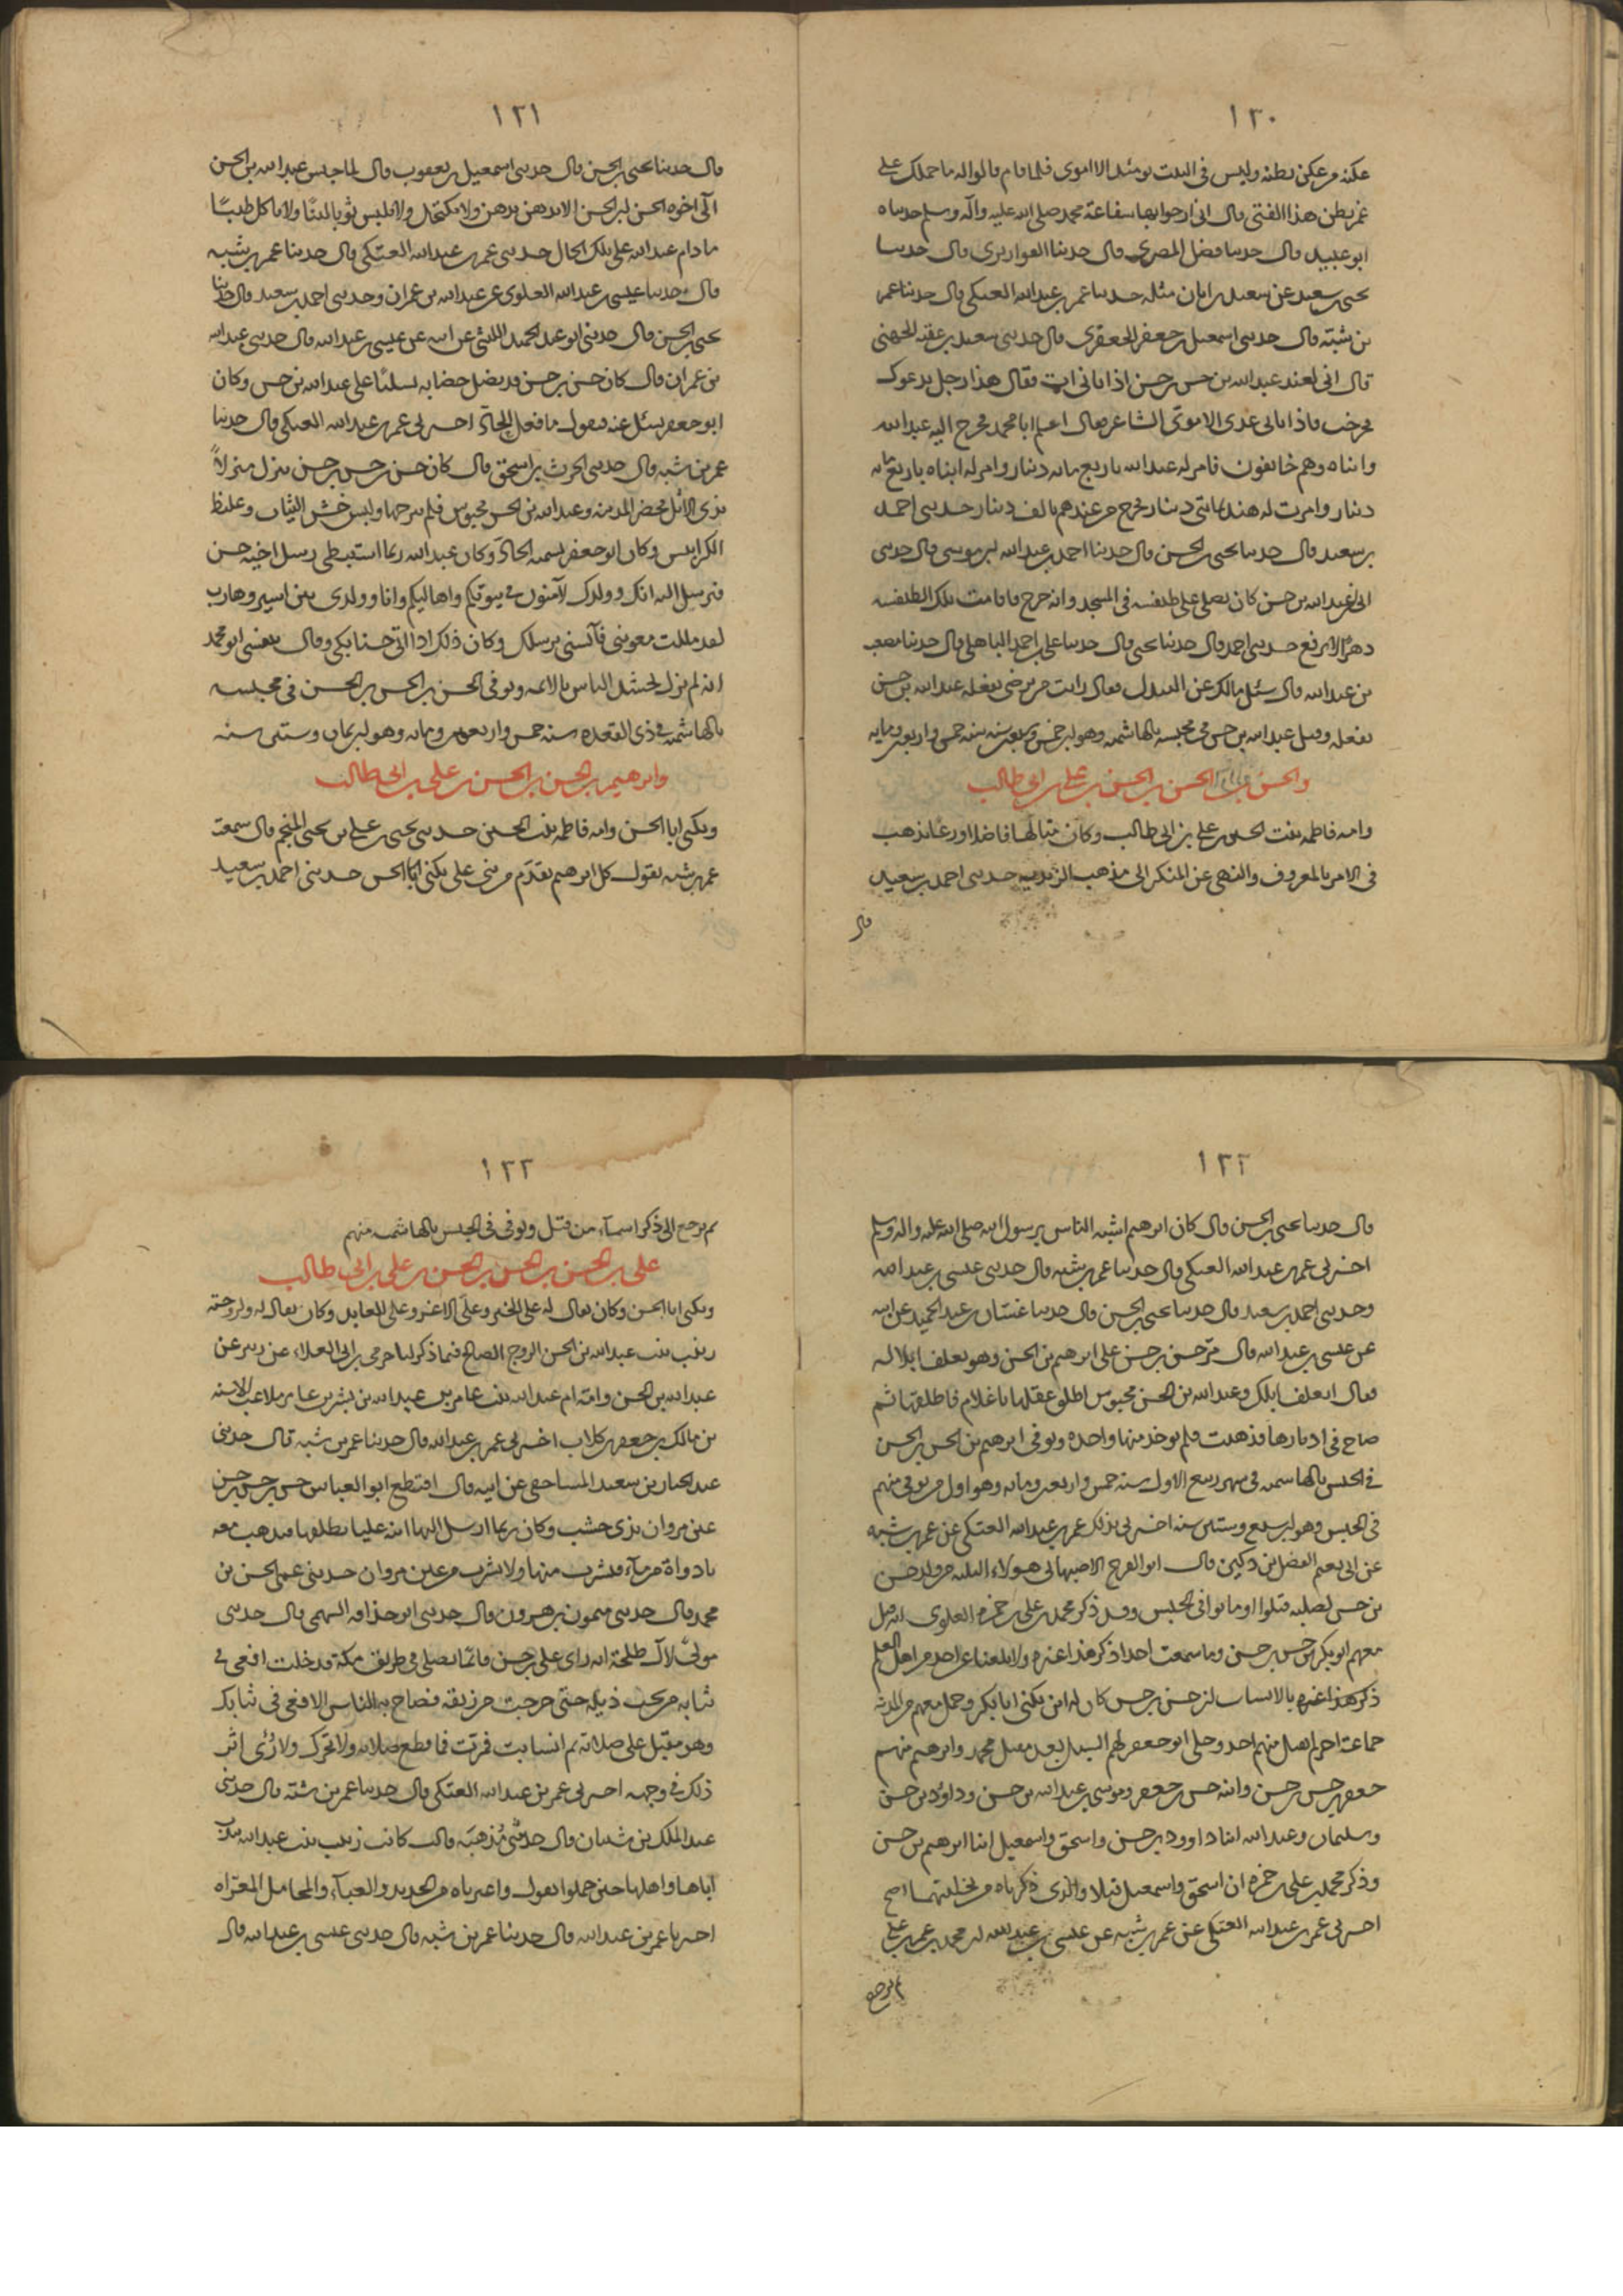 ١٢٠
عكنة من عكن بطنه وليس في البيت يومئذ الا اموي فلما قام قالوا له ما حملك على
غمز بطن هذا الفتى قال اني ارجوا بها شفاعة محمد صلى الله عليه وآله وسلم حدثناه
ابو عبيد قال حدثنا فضل المصري قال حدثنا القواريري قال حدثنا
يحيى بن سعيد عن سعيد بن ابان مثله حدثنا عمر بن عبد الله العتكي قال حدثنا عمر
بن شبة قال حدثني اسمعيل بن جعفر الجعفري قال حدثني سعيد بن عقبة الجهني
قال اني لعند عبد الله بن حسن بن حسن اذ اتاني ات فقال هذا رجل يدعوك
فخرجت فاذا انا بابي عدي الاموي الشاعر فقال اعلم ابا محمد فخرج اليه عبد الله
وابناه وهم خائفون فامر له عبد الله باربع مائة دينار وامر له ابناه باربع مائة
دينار وامرت له هند بمائتي دينار فخرج من عندهم بالف دينار حدثني احمد
بن سعيد قال حدثنا يحيى بن الحسن قال حدثنا احمد بن عبد الله بن موسى قال حدثني
ابي عبد الله بن حسن كان يصلي على طنفسة في المسجد وانه خرج فاقامت تلك الطنفسة
دهرا لا ترفع حدثني احمد قال حدثنا يحيى قال حدثنا علي بن احمد الباهلي قال حدثنا مصعب
بن عبد الله قال سئل مالك عن السدل فقال رايت من يرضى بفعله عبد الله بن حسن
يفعله وقتل عبد الله بن حسن في محبسه بالهاشمية وهو ابن خمس وسبعين سنة سنة خمس واربعين ومايه
والحسن بن الحسن بن الحسن بن علي بن ابي طالب
وامه فاطمة بنت الحسين بن علي بن ابي طالب وكان متالها فاضلا ورعا يذهب
في الامر بالمعروف والنهي عن المنكر الى مذهب الزيدية حدثني احمد بن سعيد
قال
١٢١
قال حدثنا يحيى بن الحسن قال حدثني اسمعيل بن يعقوب قال لما حبس عبد الله بن الحسن
آلى اخوه الحسن بن الحسن الا يدهن بدهن ولا يكتحل ولا يلبس ثوبا لينا ولا ياكل طيبا
ما دام عبد الله على تلك الحال حدثني عمر بن عبد الله العتكي قال حدثنا عمر بن شبه
قال حدثنا عيسى بن عبد الله العلوي عن عبد الله بن عمران وحدثني احمد بن سعيد قال حدثنا
يحيى بن الحسن قال حدثني ابو عبد الحميد الليثي عن ابيه عن عيسى بن عبد الله قال حدثني عبد الله
بن عمران قال كان حسن بن حسن قد نصل خضابه تسلبا على عبد الله بن حسن وكان
ابو جعفر يسئل عنه فيقول ما فعل الحاد اخبرني عمر بن عبد الله العتكي قال حدثنا
عمر بن شبه قال حدثني الحرث بن اسحق قال كان حسن بن حسن بن حسن ينزل منزلاً
بذي الاثل فحضر المدينة وعبد الله بن الحسن محبوس فلم يبرحها ولبس خشن الثياب وغليظ
الكرابيس وكان ابو جعفر يسميه الحادّ وكان عبد الله ربما استبطى رسل اخيه حسن
فيرسل اليه انك وولدك لآمنون في بيوتكم واهاليكم وانا وولدي بين اسير وهارب
لقد مللت معونتي فآنسني برسلك وكان ذلك اذا اتى حسنا بكى وقال بنفسي ابو محمد
انه لم يزل يحشد الناس بالائمة وتوفي الحسن بن الحسن بن الحسن في محبسه
بالهاشمية في ذي القعده سنة خمس واربعين ومائه وهو ابن ثمان وستين سنه
وابرهيم بن الحسن بن الحسن بن علي بن ابي طالب
ويكنى ابا الحسن وامه فاطمه بنت الحسين حدثني يحيى بن علي بن يحيى المنجم قال سمعت
عمر بن شبه يقول كل ابرهيم تقدّم من بني علي يكنى ابا الحسن حدثني احمد بن سعيد
١٢٢
قال حدثنا يحيى بن الحسن قال كان ابرهيم اشبه الناس برسول الله صلى الله عليه واله وسلم
اخبرني عمر بن عبد الله العتكي قال حدثنا عمر بن شبه قال حدثني عيسى بن عبد الله
وحدثني احمد بن سعيد قال حدثنا يحيى بن الحسن قال حدثنا غسان بن عبد الحميد عن ابيه
عن عيسى بن عبد الله قال مرّ حسن بن حسن على ابرهيم بن الحسن وهو يعلف ابلا له
فقال اتعلف ابلك وعبد الله بن الحسن محبوس اطلق عقلها يا غلام فاطلقها ثم
صاح في ادبارها فذهبت فلم يوخذ منها واحده وتوفي ابرهيم بن الحسن بن الحسن
في الحبس بالهاشميه في شهر ربيع الاول سنة خمس واربعين ومائه وهو اول من توفي منهم
في الحبس وهو ابن سبع وستين سنه اخبرني بذلك عمر بن عبد الله العتكي عن عمر بن شبه
عن ابي نعيم الفضل بن دكين قال ابو الفرج الاصبهاني هولاء الثلثة من ولد حسن
بن حسن لصلبه قتلوا او ماتوا في الحبس وقد ذكر محمد بن علي بن حمزة العلوي انه قتل
معهم ابو بكر بن حسن بن حسن وما سمعت احدا ذكر هذا غيره ولا بلغنا عن احد من اهل العلم
ذكر هذا غيره بالانساب ان حسن بن حسن كان له ابن يكنى ابا بكر وحمل معهم من المدينة
جماعة اخر لم يقتل منهم احد وخلى ابو جعفر لهم السبيل بعد مقتل محمد وابرهيم منهم
جعفر بن حسن بن حسن وابنه حسن بن جعفر وموسى بن عبد الله بن حسن وداؤد بن حسن
وسليمان وعبد الله ابنا داوود بن حسن واسحق واسمعيل ابنا ابرهيم بن حسن
وذكر محمد بن علي بن حمزة ان اسحق واسمعيل قتلا والذي ذكرناه من تخليتهما اصح
اخبرني عمر بن عبد الله العتكي عن عمر بن شبه عن عيسى بن عبد الله بن محمد بن عمر بن علي
ثم نرجع
١٢٣
ثم نرجع الى ذكر اسماء من قتل وتوفي في الحبس بالهاشميه منهم
علي بن الحسن بن الحسن بن الحسن بن علي بن ابي طالب
ويكنى ابا الحسن وكان يقال له علي الخير وعلي الاغر وعلي العابد وكان يقال له ولزوجته
زينب بنت عبد الله بن الحسن الزوج الصالح فيما ذكر لنا حرمي بن ابي العلاء عن زبير عن
عبد الله بن الحسن وامه ام عبد الله بنت عامر بن عبد الله بن بشر بن عامر ملاعب الاسنه
بن مالك بن جعفر بن كلاب اخبرني عمر بن عبد الله قال حدثنا عمر بن شبه قال حدثني
عبد الجبار بن سعيد المساحقي عن ابيه قال اقتطع ابو العباس حسن بن حسن بن حسن
عين مروان بذي خشب وكان ربما ارسل اليها ابنه عليا يطلقها فيذهب معه
باداوة من ماء فيشرب منها ولا يشرب من عين مروان حدثني عمي الحسن بن
محمد قال حدثني ميمون بن هرون قال حدثني ابو حذافه السهمي قال حدثني
مولىً لآل طلحة انه راى علي بن حسن قائما يصلي في طريق مكة فدخلت افعى في
ثيابه من تحت ذيله حتى خرجت من زيقه فصاح به الناس الافعى في ثيابك
وهو مقبل على صلاته ثم انسابت فمرّت فما قطع صلاته ولا تحرك ولا رُئي اثر
ذلك في وجهه اخبرني عمر بن عبد الله العتكي قال حدثنا عمر بن شبة قال حدثني
عبد الملك بن شيبان قال حدثتني مُذهبَه قالت كانت زينب بنت عبد الله تندب
اباها واهلها حين حملوا تقول واعبرتاه من الحديد والعباء والمحامل المعرّاه
اخبرنا عمر بن عبد الله قال حدثنا عمر بن شبه قال حدثني عيسى بن عبد الله قال